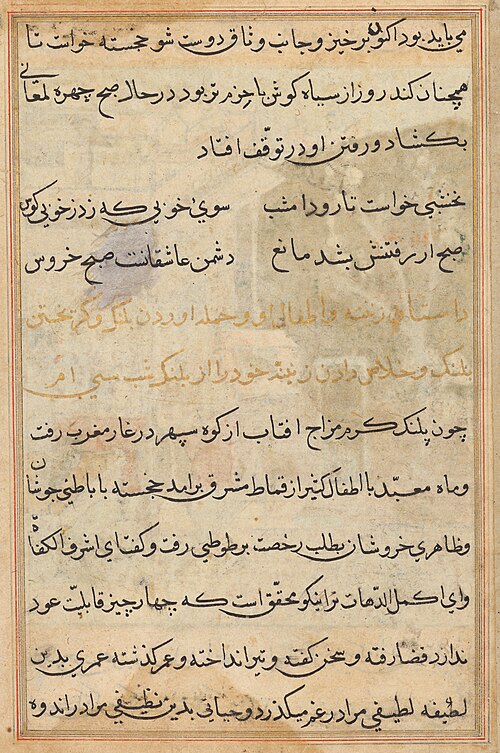 می باید بود اکنون برخیز و جانب وثاق دوست شو خجسته خواست تا
همچنان کند روز از سیاه کوش با حزم تر بود در حال صبح چهره لمعانی
بکشاد و رفتن او در توقف افتاد
نخشبی خواست تا رود امشب سوی خوبی که زد ز خوبی کوس
صبح از رفتنش بشد مانع دشمن عاشقانست صبح خروس
داستان و اطفال او و حیله اوردن پلنک و کریختن
پلنک و خلاص دادن خود را از پلنک شب سی ام
چون پلنک کرم مزاج افتاب از کوه سپهر در غار مغرب رفت
و ماه معبد با اطفال کثیر از قماط مشرق برامد خجسته با باطنی جوشان
و ظاهری خروشان بطلب رخصت بر طوطی رفت و کفت ای اشرف الکفاة
و ای اکمل الدهات ترا نیکو محقق است که چهار چیز قابلیت عود
ندارد قضا رفته و سخن کفته و تیر انداخته و عمر کذشته عمری بدین
لطیفه لطیفی مرا در غم میکذرد و حیاتی بدین نظیفی مرا در اندوه